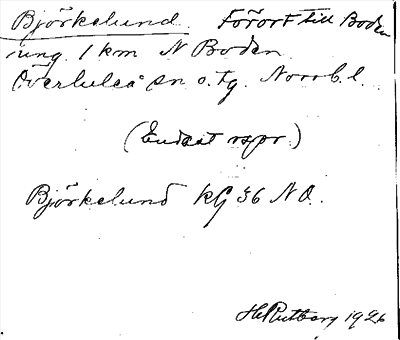 Björkelund. Förort till Boden
ung. 1 km N Boden
Överluleå sn o. tg. Norrb. l.
(Endast rspr.)
Björkelund kG 36 NO.
H Rutberg 1926